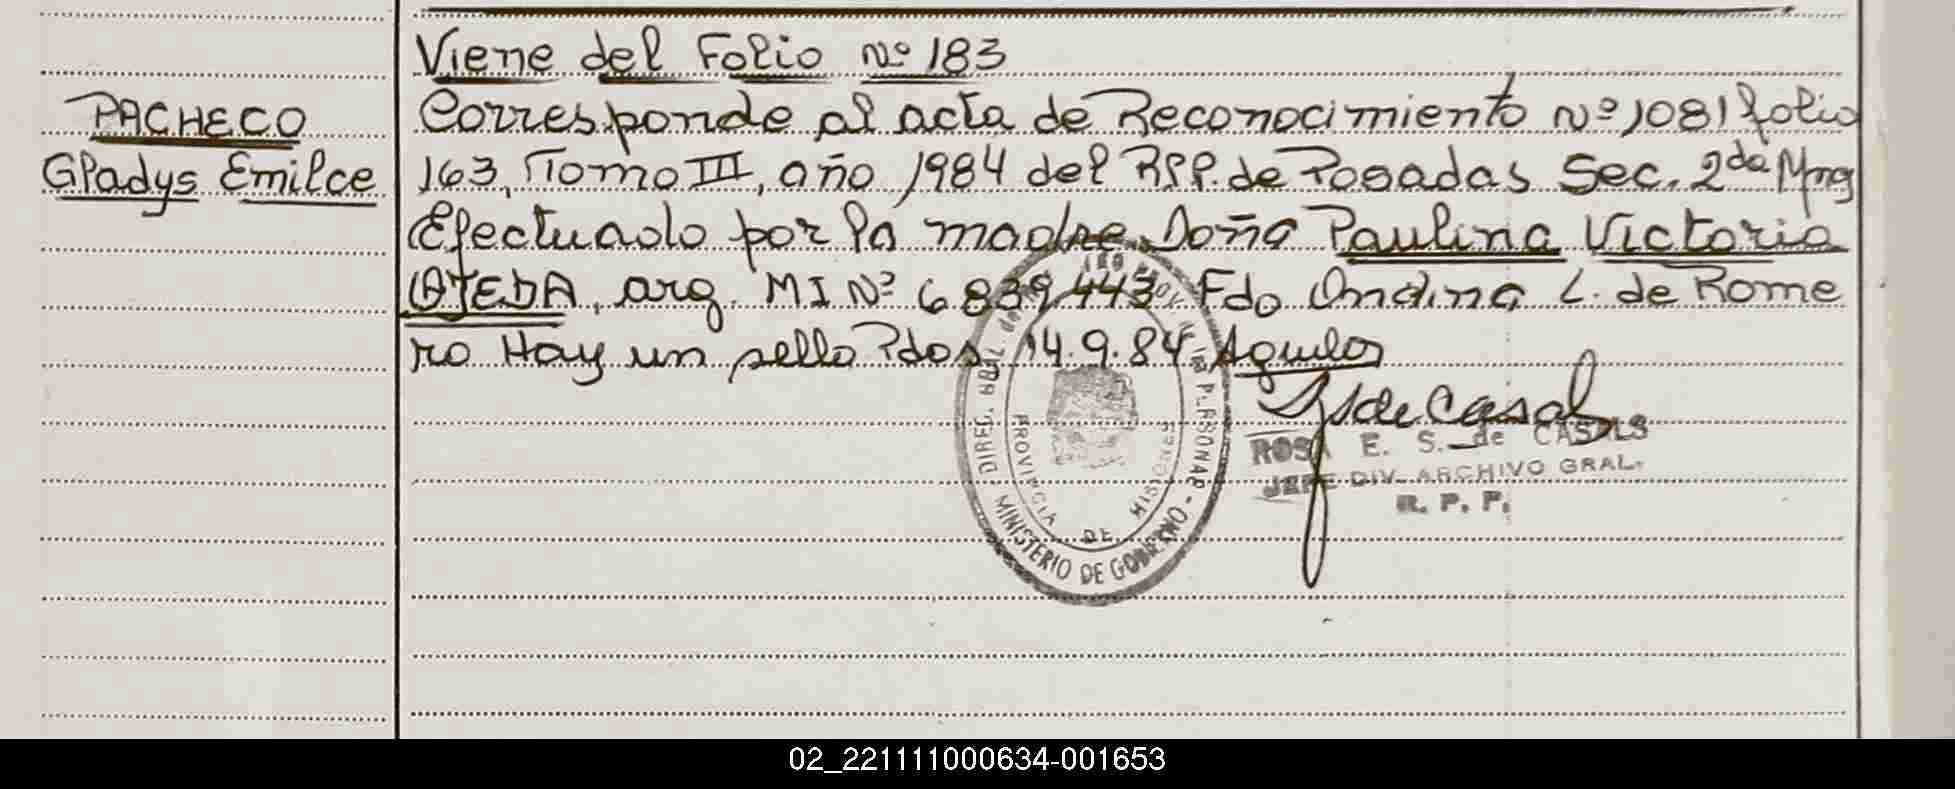 Viene del Folio Nº 183
PACHECO
Gladys Emilce
Corresponde al acta de Reconocimiento Nº 1081 folio
163, Tomo III, año 1984 del R.P.P. de Posadas Sec. 2da Mnes
Efectuado por la madre Doña Paulina Victoria
OJEDA, arg. MI Nº 6839443 Fdo Ondina L. de Rome
ro Hay un sello Pdos, 14.9.84 Aguilar
ROSA E. S. de CASALS
JEFE DIV. ARCHIVO GRAL.
R. P. P.
DIREC. GRAL. DE
PERSONAS - MINISTERIO DE GOBIERNO
PROVINCIA DE MISIONES
02_221111000634-001653